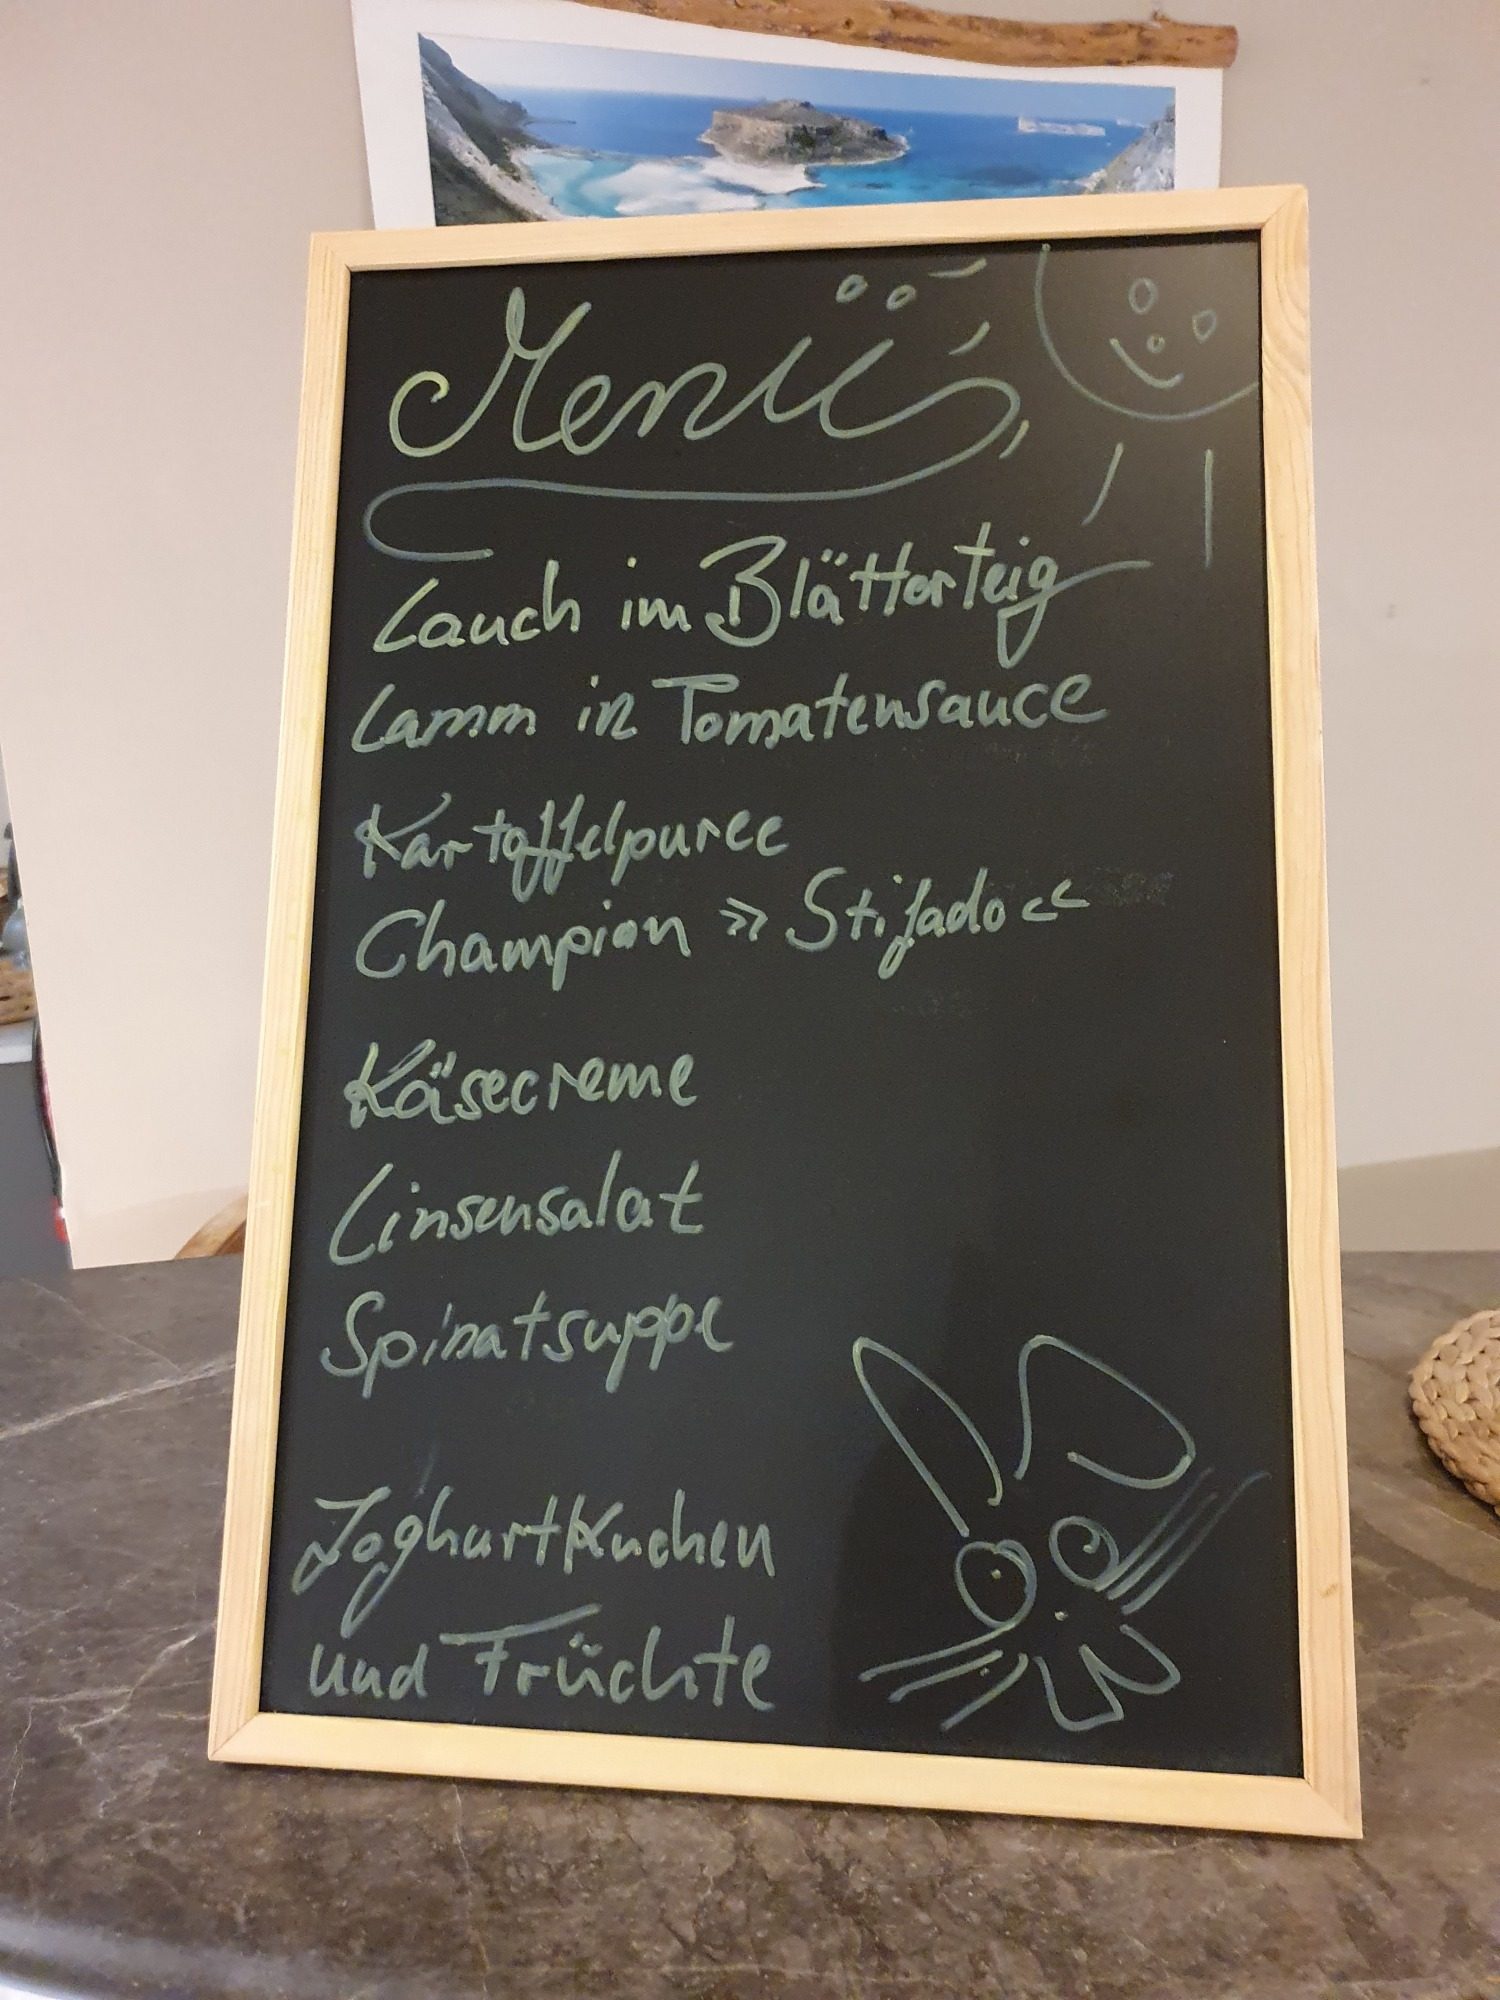 Menü
Lauch im Blätterteig
Lamm in Tomatensauce
Kartoffelpuree
Champion » Stifado «
Käsecreme
Linsensalat
Spinatsuppe
Joghurtkuchen
und Früchte